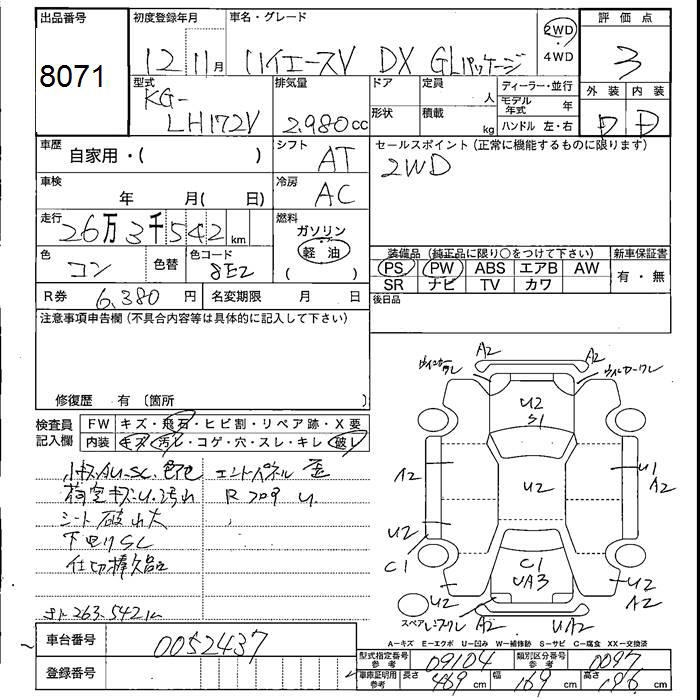 出品番号
8071
初度登録年月
12 11月
車名・グレード
ハイエースV DX GLパッケージ
2WD
・
4WD
評価点
3
外装 内装
D D
型式
KG-
LH172V
排気量
2,980cc
ドア
形状
定員
人
積載
kg
ディーラー・並行
モデル年式 年
ハンドル 左・右
車歴
自家用・( )
シフト
AT
セールスポイント(正常に機能するものに限ります)
2WD
車検
年 月( 日)
冷房
AC
走行
26万3千542km
燃料
ガソリン
軽油
( )
色
コン
色替
色コード
8E2
装備品(純正品に限り○をつけて下さい)
新車保証書
PS PW ABS エアB AW
SR ナビ TV カワ
有・無
R券 6,380円
名変期限 月 日
後日品
注意事項申告欄(不具合内容等は具体的に記入して下さい)
修復歴 有 〔箇所 〕
検査員
記入欄
FW キズ・飛石・ヒビ割・リペア跡・X要
内装 キズ・汚レ・コゲ・穴・スレ・キレ・破レ
小キズAU.SC.
荷室キズ.U.汚れ
シート破れ大
下回りSC
仕切棒欠品
エンドパネル
RフロアU
263.542k
A2 A2
U2
S1
A2
U2
U1
A2
U2
C1
C1
UA3
U2
U2
A2
A2
UA2
A-キズ E-エクボ U-凹み W-補修跡 S-サビ C-腐食 XX-交換済
車台番号
0052437
登録番号
型式指定番号
参考
09104
類別区分番号
参考
0097
車庫証明用
参考
長さ 469cm
幅 169cm
高さ 198cm